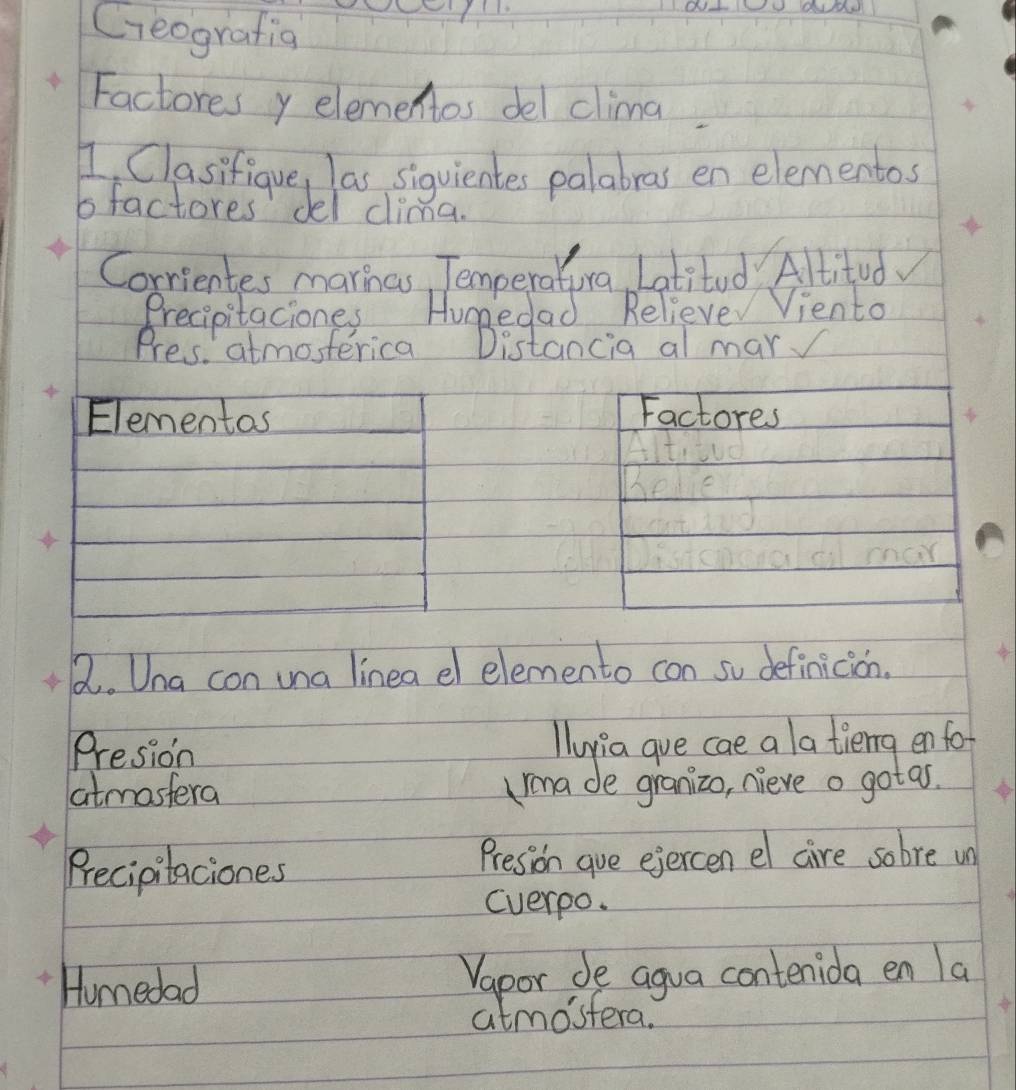 Geografia
Factores y elementos del clima
1. Clasifique, las siguientes palabras en elementos
o factores del clima.
Corrientes marinas, Temperatura, Latitud ✓ Altitud ✓
Precipitaciones Humedad Relieve ✓ Viento
Pres. atmosférica Distancia al mar ✓
Elementos Factores
Altitud
Relie
Distancia al mar
2. Una con una línea el elemento con su definición.
Presión lluvia que cae a la tierra en fo-
atmosfera rma de granizo, nieve o gotas.
Precipitaciones Presión que ejercen el aire sobre un
cuerpo.
Humedad Vapor de agua contenida en la
atmósfera.